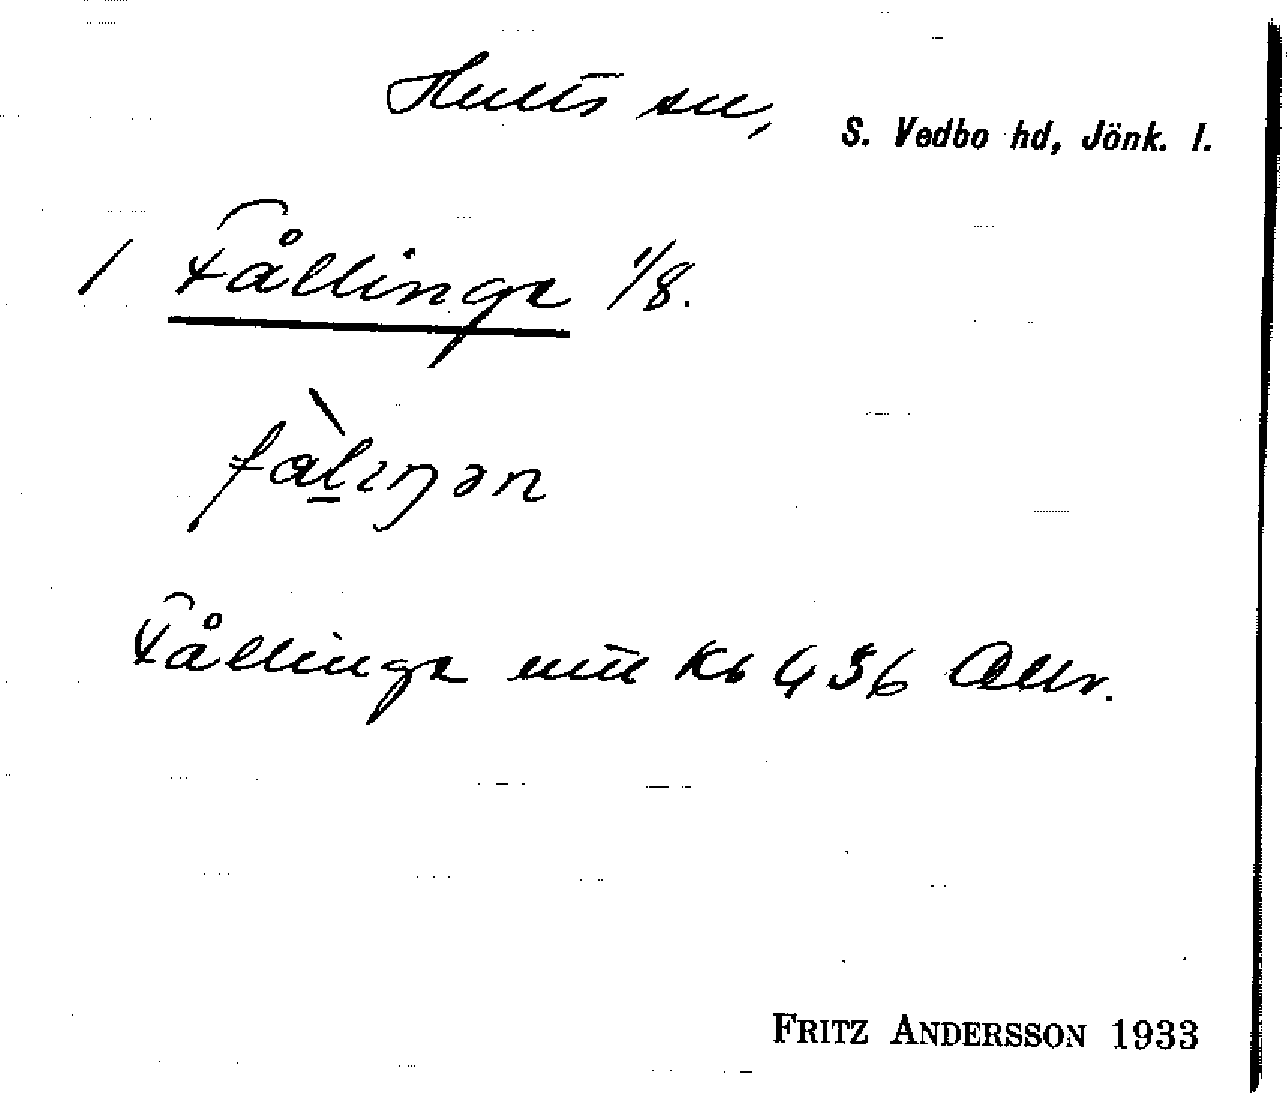 Hults sn, S. Vedbo hd, Jönk. l.
1 Fållinge 1/8.
fàlıŋən
Fållinge mtl Kb 436 Allm.
FRITZ ANDERSSON 1933